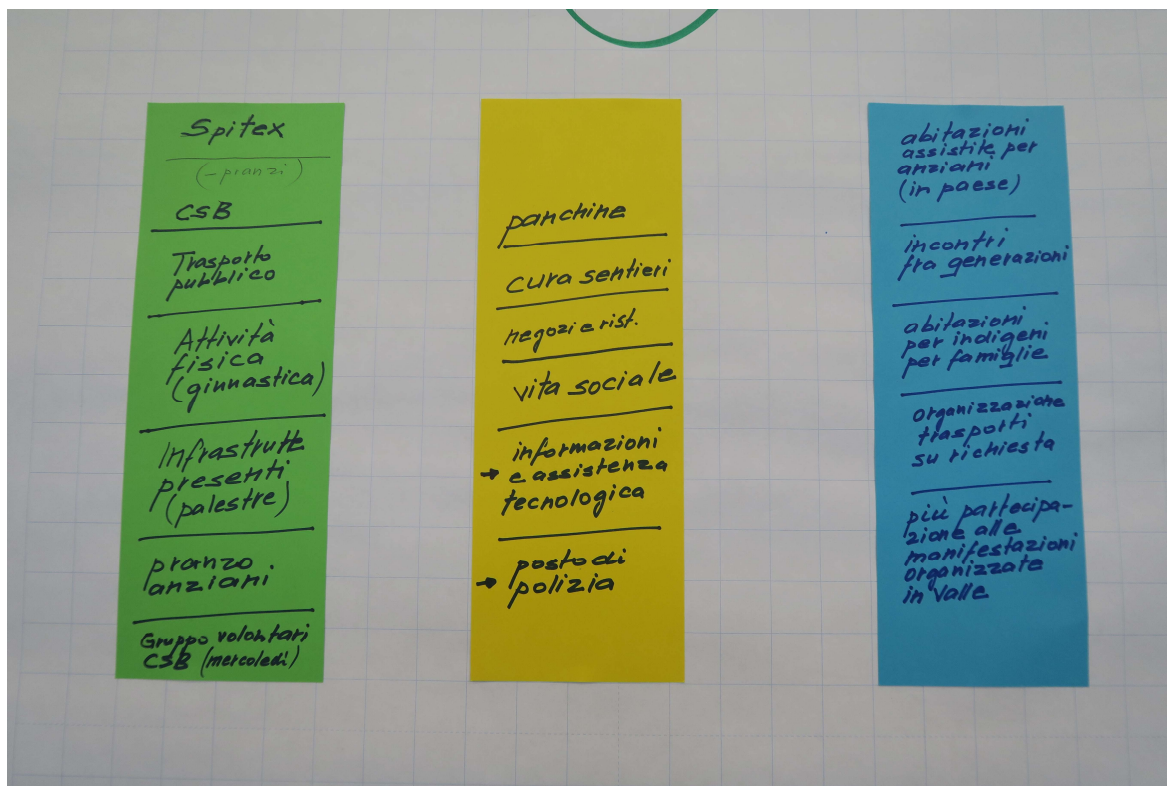 Spitex
(- pranzi)
CSB
Trasporto
pubblico
Attività
fisica
(ginnastica)
Infrastrutt
presenti
(palestre)
pranzo
anziani
Gruppo volontari
CSB (mercoledì)
panchine
cura sentieri
negozi e rist.
vita sociale
informazioni
→ e assistenza
tecnologica
posto di
→ polizia
abitazioni
assistite per
anziani
(in paese)
incontri
fra generazioni
abitazioni
per indigeni
per famiglie
organizzazione
trasporti
su richiesta
più partecipa-
zione alle
manifestazioni
organizzate
in valle